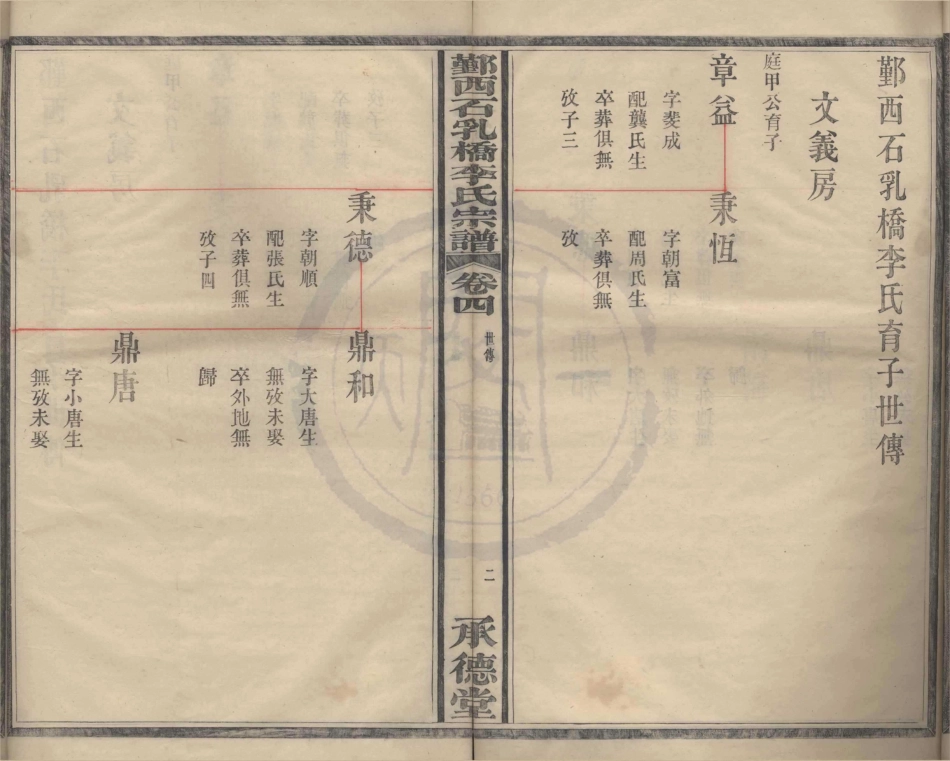 鄞西石乳橋李氏育子世傳
文義房
庭甲公育子
章益
字斐成
配龔氏生
卒葬俱無
攷子三
秉恆
字朝富
配周氏生
卒葬俱無
攷
鄞西石乳橋李氏宗譜
卷四
世傳
二
承德堂
秉德
字朝順
配張氏生
卒葬俱無
攷子四
鼎和
字大唐生
無攷未娶
卒外地無
歸
鼎唐
字小唐生
無攷未娶